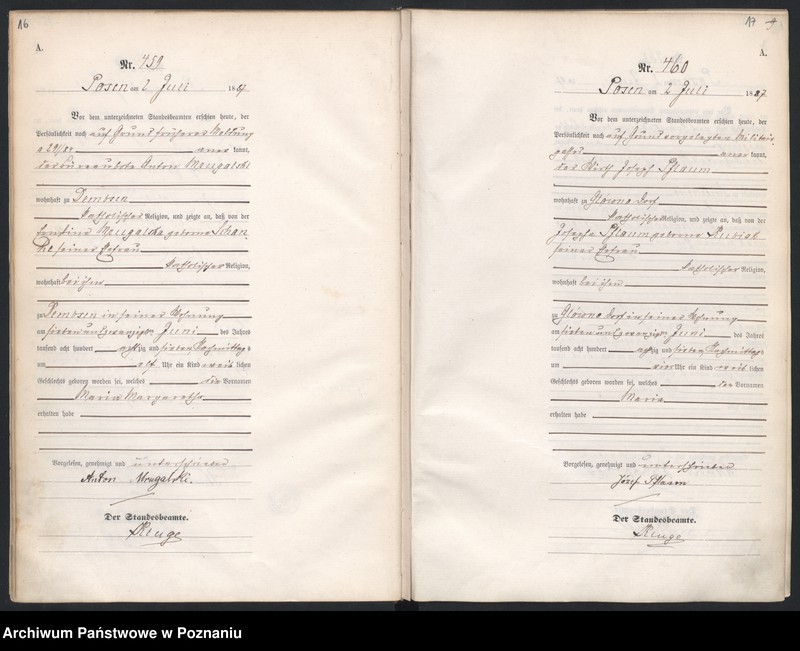 16
A.
Nr. 459
Posen am 2 Juli 1887.
Vor dem unterzeichneten Standesbeamten erschien heute, der
Persönlichkeit nach auf Grund früherer Meldung
kannt,
Anton Mrugalski
wohnhaft zu Dembsen
katholischer Religion, und zeigte an, daß von der
Mrugalska geborne
seiner Ehefrau
katholischer Religion,
wohnhaft bei ihm
zu Dembsen in seiner Wohnung
am sieben und zwanzigsten Juni des Jahres
tausend acht hundert achtzig und sieben Nachmittags
um elf Uhr ein Kind weiblichen
Geschlechts geboren worden sei, welches die Vornamen
Maria Margaretha
erhalten habe
Vorgelesen, genehmigt und unterschrieben
Anton Mrugalski.
Der Standesbeamte.
17
A.
Nr. 460
Posen am 2 Juli 1887
Vor dem unterzeichneten Standesbeamten erschien heute, der
Persönlichkeit nach auf Grund vorgelegten Militair-
passes anerkannt,
der Wirth Joseph Pflaum
wohnhaft zu Glowno Dorf
katholischer Religion, und zeigte an, daß von der
Josepha Pflaum geborne
seiner Ehefrau
katholischer Religion,
wohnhaft bei ihm
zu Glowno Dorf in seiner Wohnung
am sieben und zwanzigsten Juni des Jahres
tausend acht hundert achtzig und sieben Nachmittags
um vier Uhr ein Kind weiblichen
Geschlechts geboren worden sei, welches den Vornamen
Maria
erhalten habe
Vorgelesen, genehmigt und unterschrieben
Józef Pflaum
Der Standesbeamte.
Archiwum Państwowe w Poznaniu